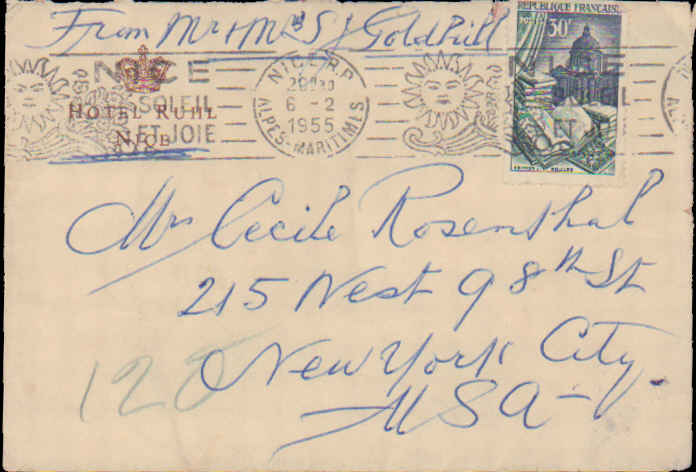 From Mr + Mrs J Goldhill
REPUBLIQUE FRANÇAISE
30F
NICE
SOLEIL
ET JOIE
HOTEL RUHL
NICE
NICE R.P.
6 - 2
1955
ALPES-MARITIMES
NICE
ET
Mrs Cecile Rosenthal
215 West 98th St
New York City.
USA -
120